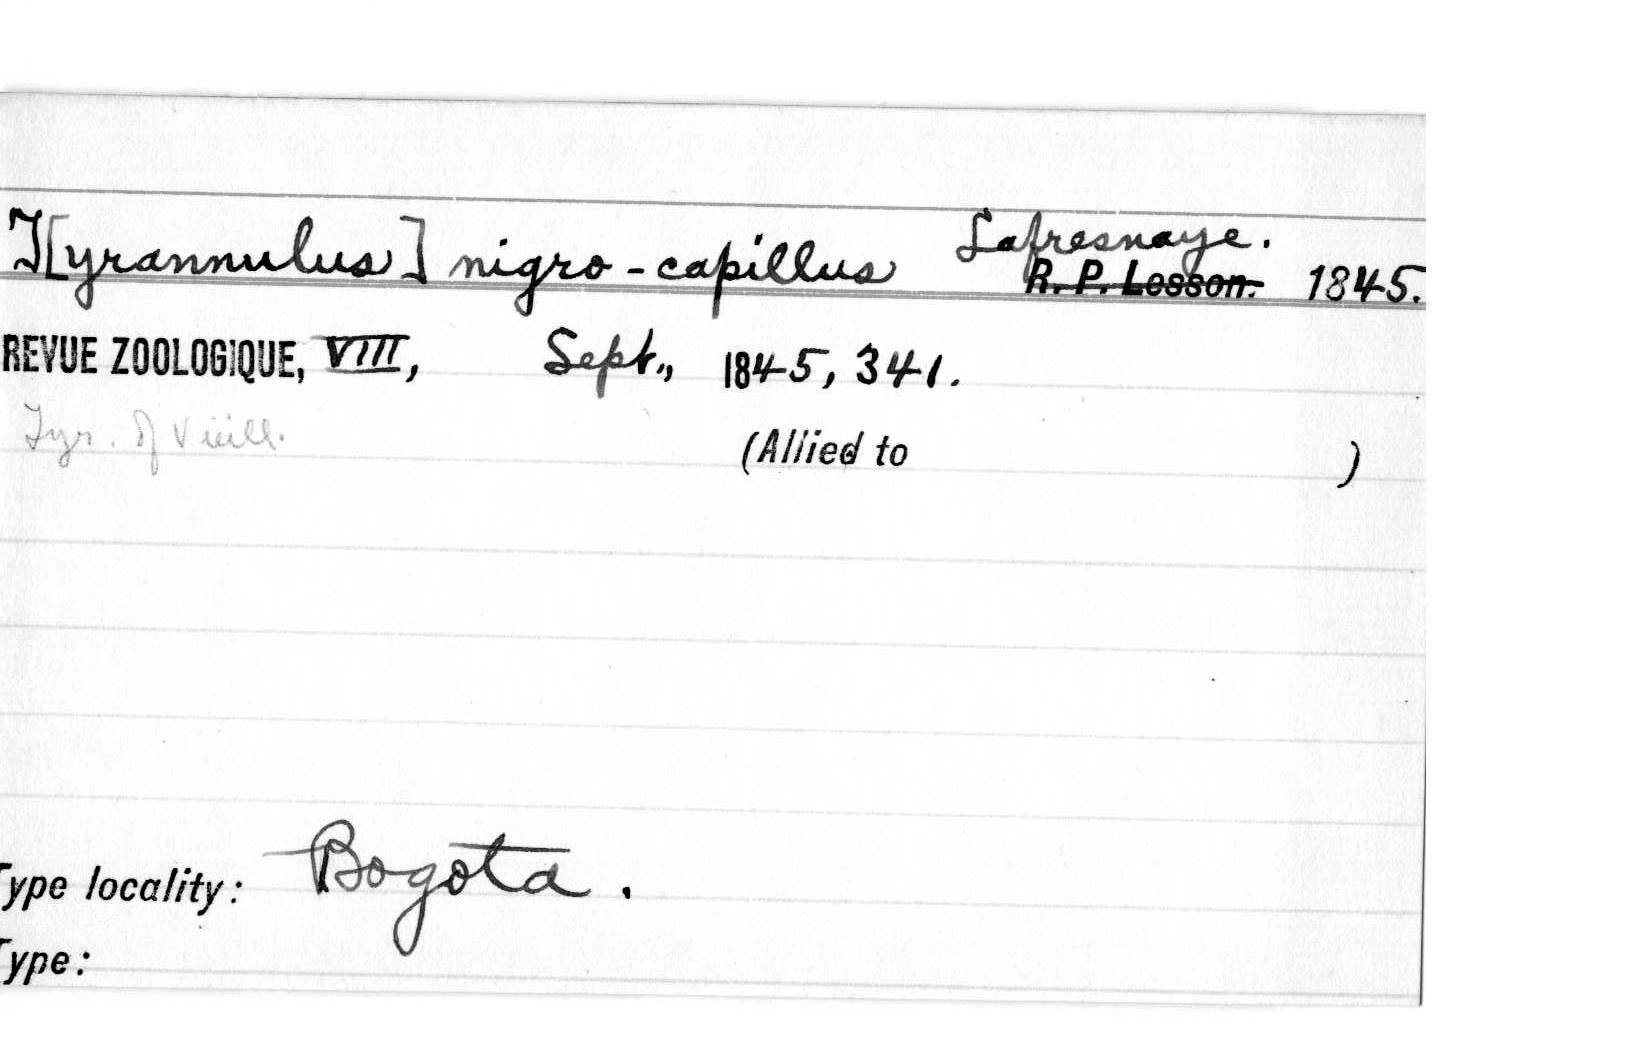 T[yrannulus] nigro-capillus Lafresnaye.
R. P. Lesson. 1845.
REVUE ZOOLOGIQUE, VIII, Sept., 1845, 341.
Tyr. of Vieill.
(Allied to )
Type locality: Bogota.
Type: